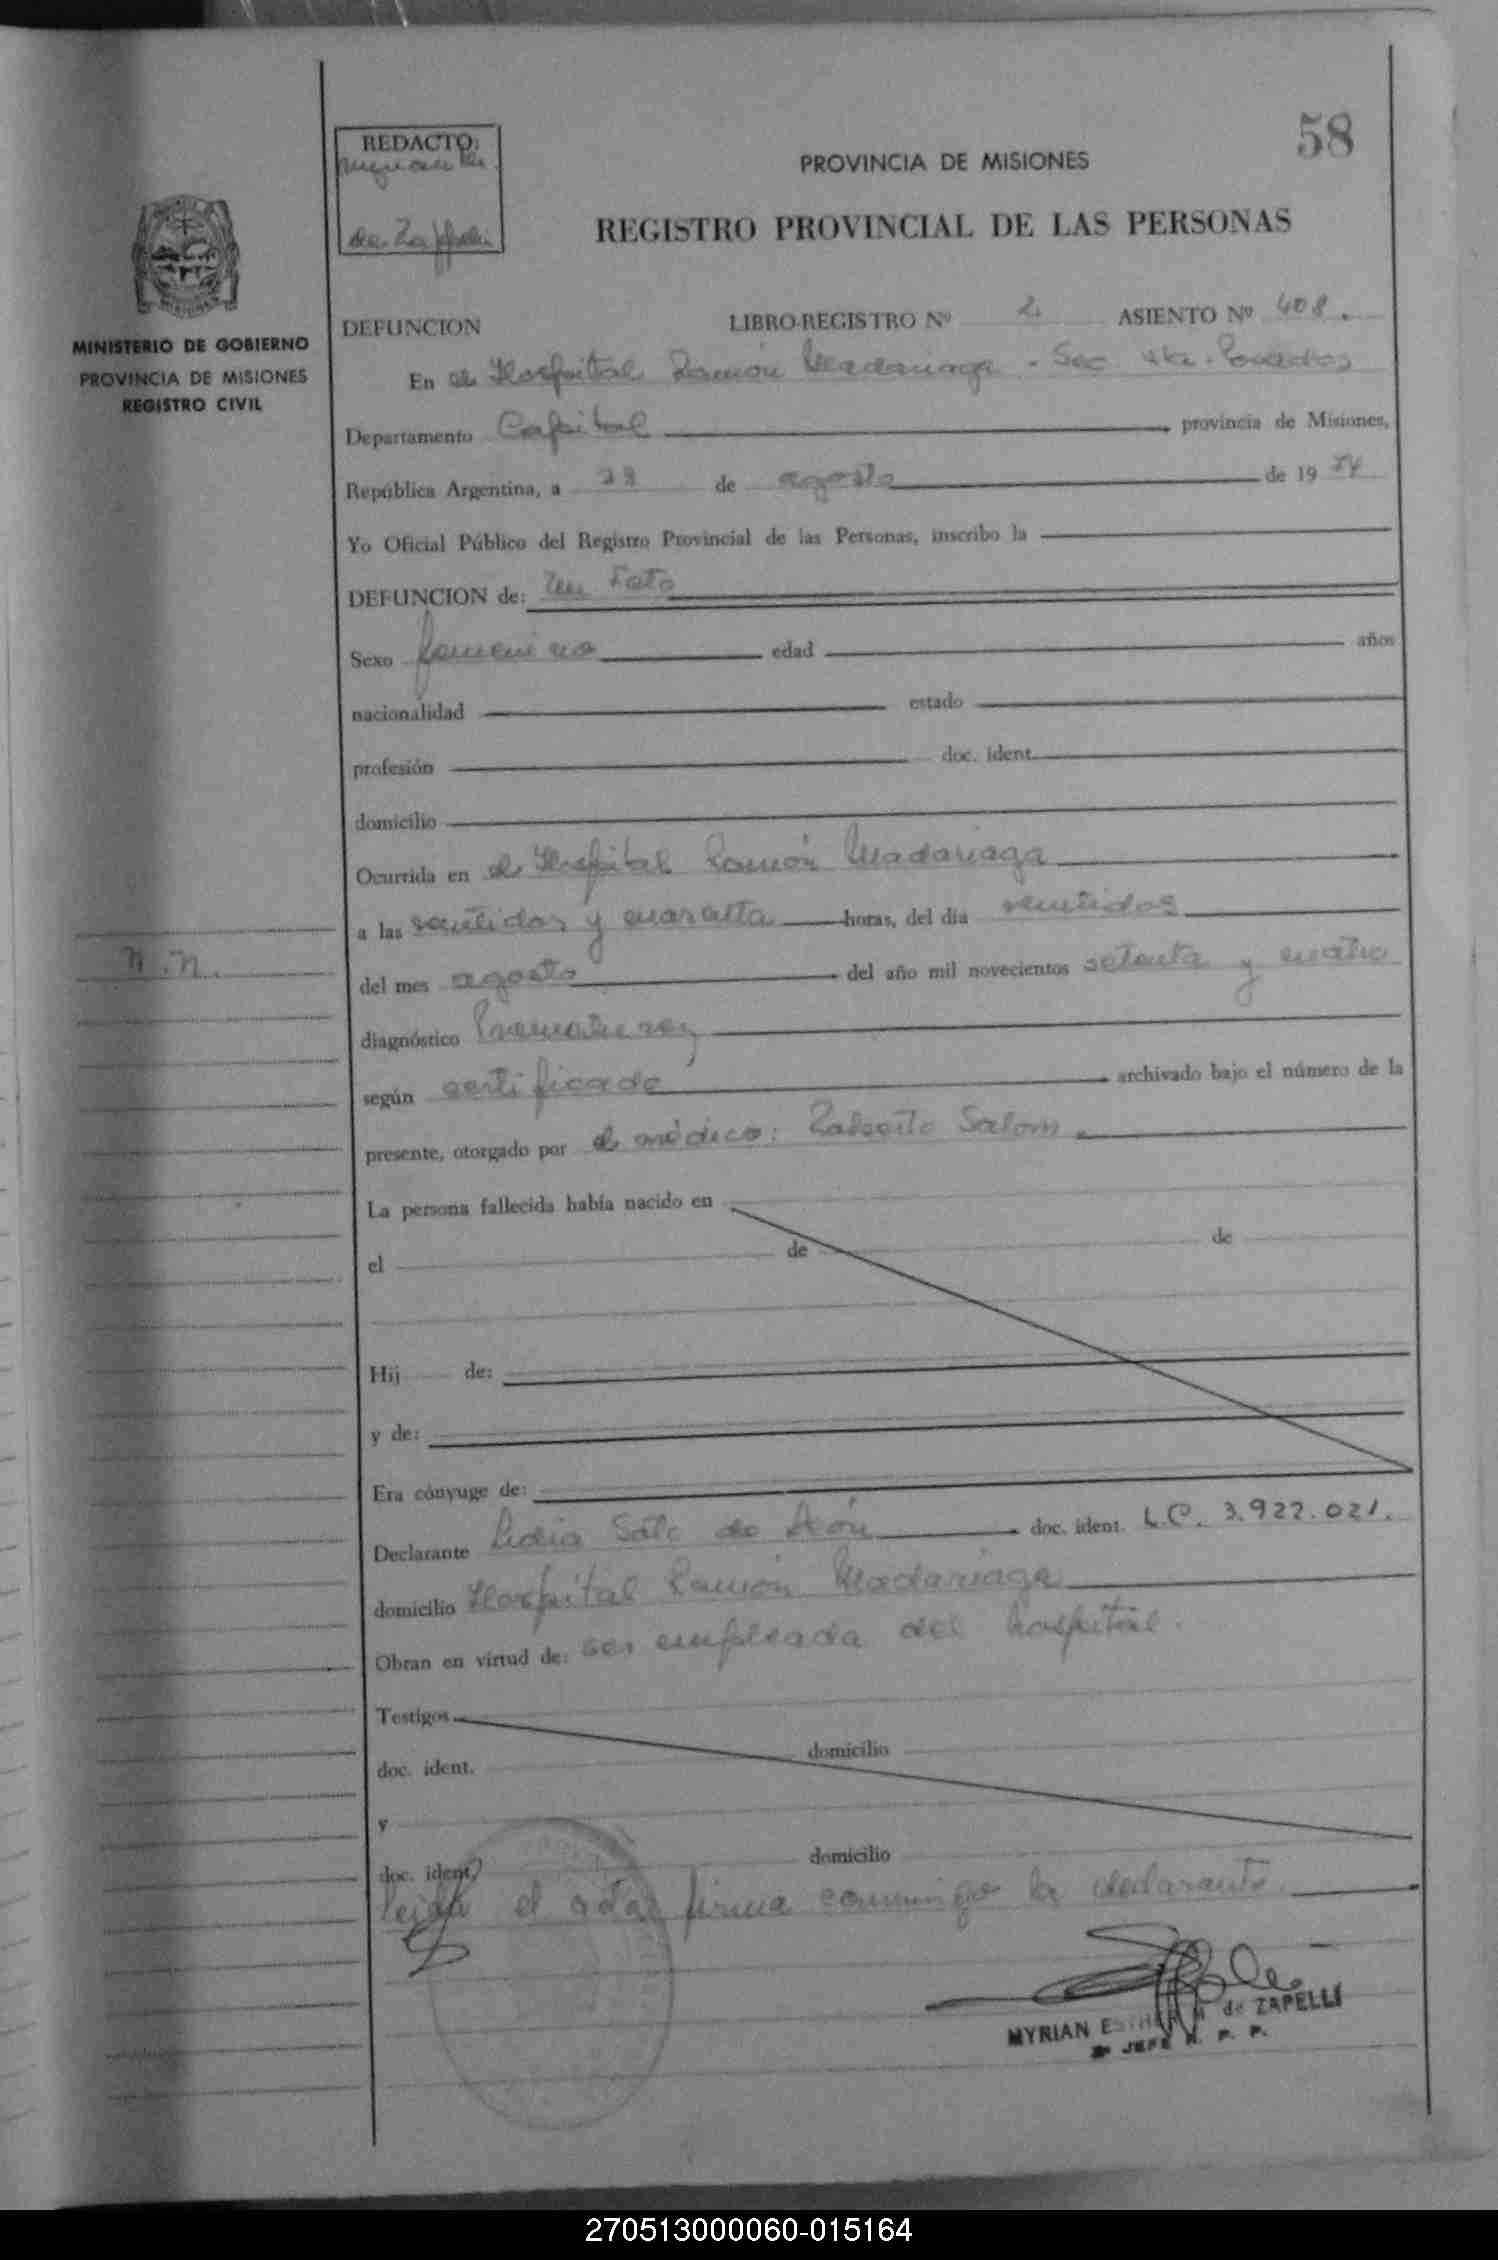 58
REDACTO:
PROVINCIA DE MISIONES
REGISTRO PROVINCIAL DE LAS PERSONAS
MINISTERIO DE GOBIERNO
PROVINCIA DE MISIONES
REGISTRO CIVIL
DEFUNCION LIBRO-REGISTRO Nº 2 ASIENTO Nº 408.
En el Hospital Ramón Madariaga - Sec. 4ta - Posadas
Departamento Capital provincia de Misiones,
República Argentina, a de agosto de 19 74
Yo Oficial Público del Registro Provincial de las Personas, inscribo la
DEFUNCION de: Un Feto
Sexo femenino edad años
nacionalidad estado
profesión doc. ident.
domicilio
Ocurrida en el Hospital Ramón Madariaga
a las veintidos y cuarenta horas, del día veintidos
N.N.
del mes agosto del año mil novecientos setenta y cuatro
diagnóstico Prematurez
según certificado archivado bajo el número de la
presente, otorgado por el médico: Roberto Salom
La persona fallecida había nacido en
el de de
Hij de:
y de:
Era cónyuge de:
Declarante Lidia de doc. ident. L.C. 3.922.021.
domicilio Hospital Ramón Madariaga
Obran en virtud de: ser empleada del hospital.
Testigos
doc. ident. domicilio
y
doc. ident. domicilio
Leida el acta, firma conmigo la declarante.
MYRIAN ESTHER M de ZAPELLI
JEFE R. P. P.
270513000060-015164